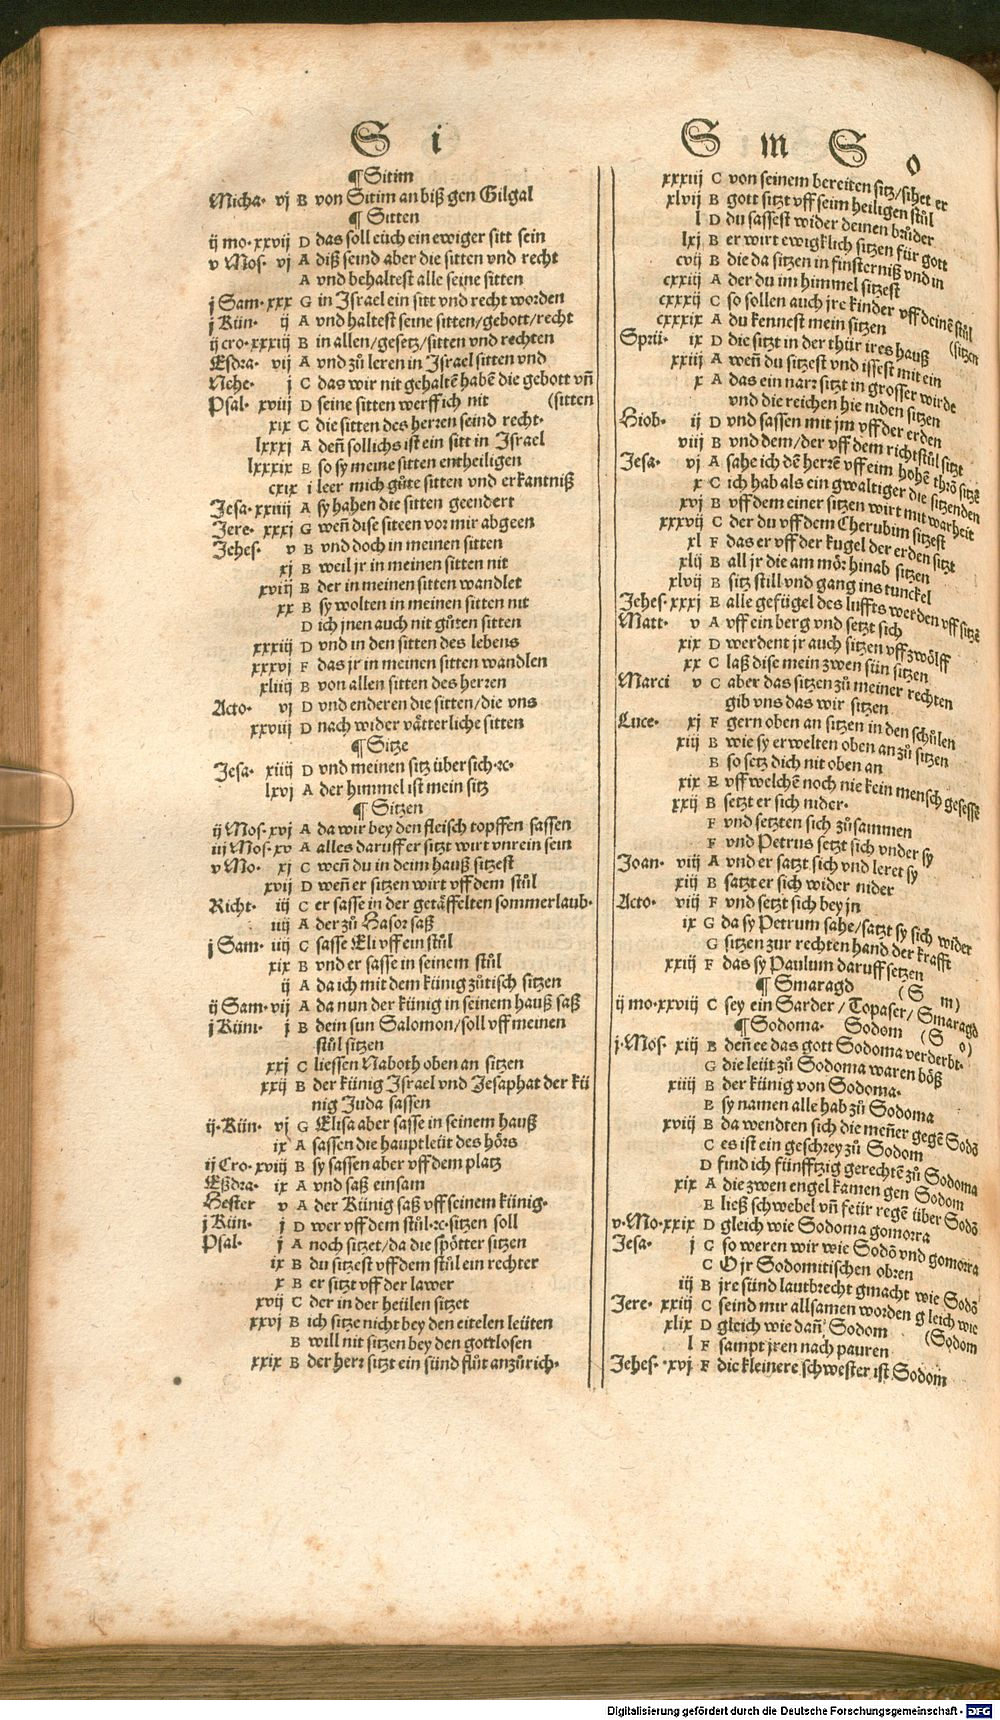 S i
¶ Sitim
Micha· vj B von Sitim an biß gen Gilgal
¶ Sitten
ij mo· xxvij D das soll eüch ein ewiger sitt sein
v Mos· vj A diß seind aber die sitten vnd recht
A vnd behaltest alle seine sitten
j Sam· xxx G in Israel ein sitt vnd recht worden
j Kün· ij A vnd haltest seine sitten/gebott/recht
ij cro· xxxiij B in allen/gesetz/sitten vnd rechten
Esdra· vij A vnd zů leren in Israel sitten vnd
Nehe· j C das wir nit gehaltē habē die gebott vñ
Psal· xviij D seine sitten werff ich nit (sitten
xix C die sitten des herren seind recht·
lxxxj A deñ sollichs ist ein sitt in Israel
lxxxix E so sy meine sitten entheiligen
cxix i leer mich gůte sitten vnd erkantniß
Jesa· xxiiij A sy haben die sitten geendert
Jere· xxxj G weñ dise siteen vor mir abgeen
Jehes· v B vnd doch in meinen sitten
xj B weil jr in meinen sitten nit
xviij B der in meinen sitten wandlet
xx B sy wolten in meinen sitten nit
D ich jnen auch nit gůten sitten
xxxiij D vnd in den sitten des lebens
xxxvj F das jr in meinen sitten wandlen
xliiij B von allen sitten des herren
Acto· vj D vnd enderen die sitten/die vns
xxviij D nach wider vätterliche sitten
¶ Sitze
Jesa· xiiij D vnd meinen sitz über sich·ꝛc·
lxvj A der himmel ist mein sitz
¶ Sitzen
ij Mos· xvj A da wir bey den fleisch topffen sassen
iij Mos· xv A alles daruff er sitzt wirt vnrein sein
v Mo· xj C weñ du in deim hauß sitzest
xvij D weñ er sitzen wirt vff dem stůl
Richt· iij C er sasse in der getäffelten sommerlaub·
iiij A der zů Hasor saß
j Sam· iiij C sasse Eli vff ein stůl
xix B vnd er sasse in seinem stůl
ij A da ich mit dem künig zůtisch sitzen
ij Sam· vij A da nun der künig in seinem hauß saß
j Küni· j B dein sun Salomon/soll vff meinen
stůl sitzen
xxj C liessen Naboth oben an sitzen
xxij B der künig Israel vnd Jesaphat der kü
nig Juda sassen
ij· Kün· vj G Elisa aber sasse in seinem hauß
ix A sassen die hauptleüt des hörs
ij Cro· xviij B sy sassen aber vff dem platz
Eßdra· ix A vnd saß einsam
Hester v A der Künig saß vff seinem künig·
j Kün· j D wer vff dem stůl·ꝛc·sitzen soll
Psal· j A noch sitzet/da die spötter sitzen
ix B du sitzest vff dem stůl ein rechter
x B er sitzt vff der lawer
xvij C der in der heülen sitzet
xxvj B ich sitze nicht bey den eitelen leüten
B will nit sitzen bey den gottlosen
xxix B der herr sitzt ein sünd flůt anzůrich·
S m S o
xxxiij C von seinem bereiten sitz/sihet er
xlvij B gott sitzt vff seim heiligen stůl
l D du sassest wider deinen brůder
lxj B er wirt ewigklich sitzen für gott
cvij B die da sitzen in finsterniß vnd in
cxxiij A der du im himmel sitzest
cxxxij C so sollen auch jre kinder vff deinē stůl
cxxxix A du kennest mein sitzen (sitzen
Sprü· ix D die sitzt in der thür ires hauß
xxiij A weñ du sitzest vnd issest mit ein
x A das ein narr sitzt in grosser wirde
vnd die reichen hie niden sitzen
Hiob· ij D vnd sassen mit jm vff der erden
viij B vnd dem/der vff dem richtstůl sitzt
Jesa· vj A sahe ich dē herrē vff eim hohē thrō sitzē
x C ich hab als ein gwaltiger die sitzenden
xvj B vff dem einer sitzen wirt mit warheit
xxxvij C der du vff dem Cherubim sitzest
xl F das er vff der kugel der erden sitzt
xlij B all jr die am mör hinab sitzen
xlvij B sitz still vnd gang ins tunckel
Jehes· xxxj E alle gefügel des luffts werden vff sitzē
Matt· v A vff ein berg vnd setzt sich
xix D werdent jr auch sitzen vff zwölff
xx C laß dise mein zwen sün sitzen
Marci v C aber das sitzen zů meiner rechten
gib vns das wir sitzen
Luce· xj F gern oben an sitzen in den schůlen
xiij B wie sy erwelten oben an zů sitzen
B so setz dich nit oben an
xix E vff welchē noch nie kein mensch gesessē
xxij B setzt er sich nider·
F vnd setzten sich zůsammen
F vnd Petrus setzt sich vnder sy
Joan· viij A vnd er satzt sich vnd leret sy
xiij B satzt er sich wider nider
Acto· viij F vnd setzt sich bey jn
ix G da sy Petrum sahe/satzt sy sich wider
G sitzen zur rechten hand der krafft
xxiij F das sy Paulum daruff setzen
¶ Smaragd (S m)
ij mo· xxviij C sey ein Sarder/Topaser/Smaragd
¶ Sodoma· Sodom (S o)
j· Mos· xiij B deñ ee das gott Sodoma verderbt·
G die leüt zů Sodoma waren böß
xiiij B der künig von Sodoma·
E sy namen alle hab zů Sodoma
xviij B da wendten sich die meñer gegē Sodō
C es ist ein geschrey zů Sodom
D find ich fünfftzig gerechtē zů Sodoma
xix A die zwen engel kamen gen Sodom
E ließ schwebel vñ feür regē über Sodō
v· Mo· xxix D gleich wie Sodoma gomorra
Jesa· j C so weren wir wie Sodō vnd gomorra
C O jr Sodomitischen obren
iij B jre sünd lautbrecht gmacht wie Sodō
Jere· xxiij C seind mir allsamen worden gleich wie
xlix D gleich wie dañ Sodom (Sodom
l F sampt jren nach pauren
Jehes· xvj F die kleinere schwester ist Sodom
Digitalisierung gefördert durch die Deutsche Forschungsgemeinschaft - DFG